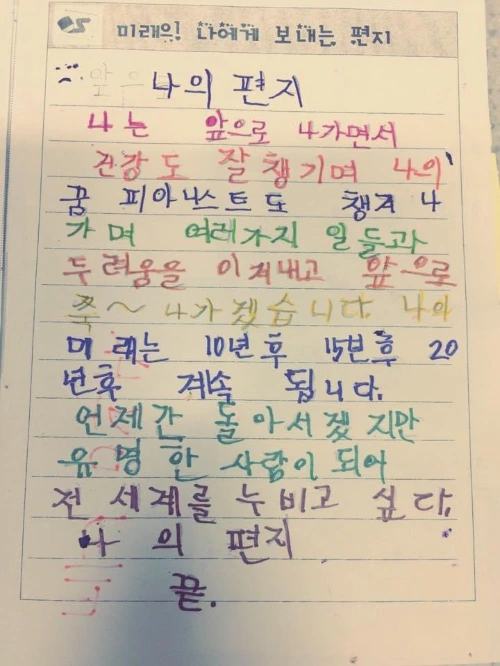 미래의 나에게 보내는 편지
나의 편지
나는 앞으로 나가면서
건강도 잘 챙기며 나의
꿈 피아니스트도 챙겨 나
가며 여러가지 일들과
두려움을 이겨내고 앞으로
쭉~ 나가겠습니다. 나의
미래는 10년후 15년후 20
년후 계속 됩니다.
언제간 돌아서겠지만
유명한 사람이 되어
전 세계를 누비고 싶다.
나의 편지
끝.